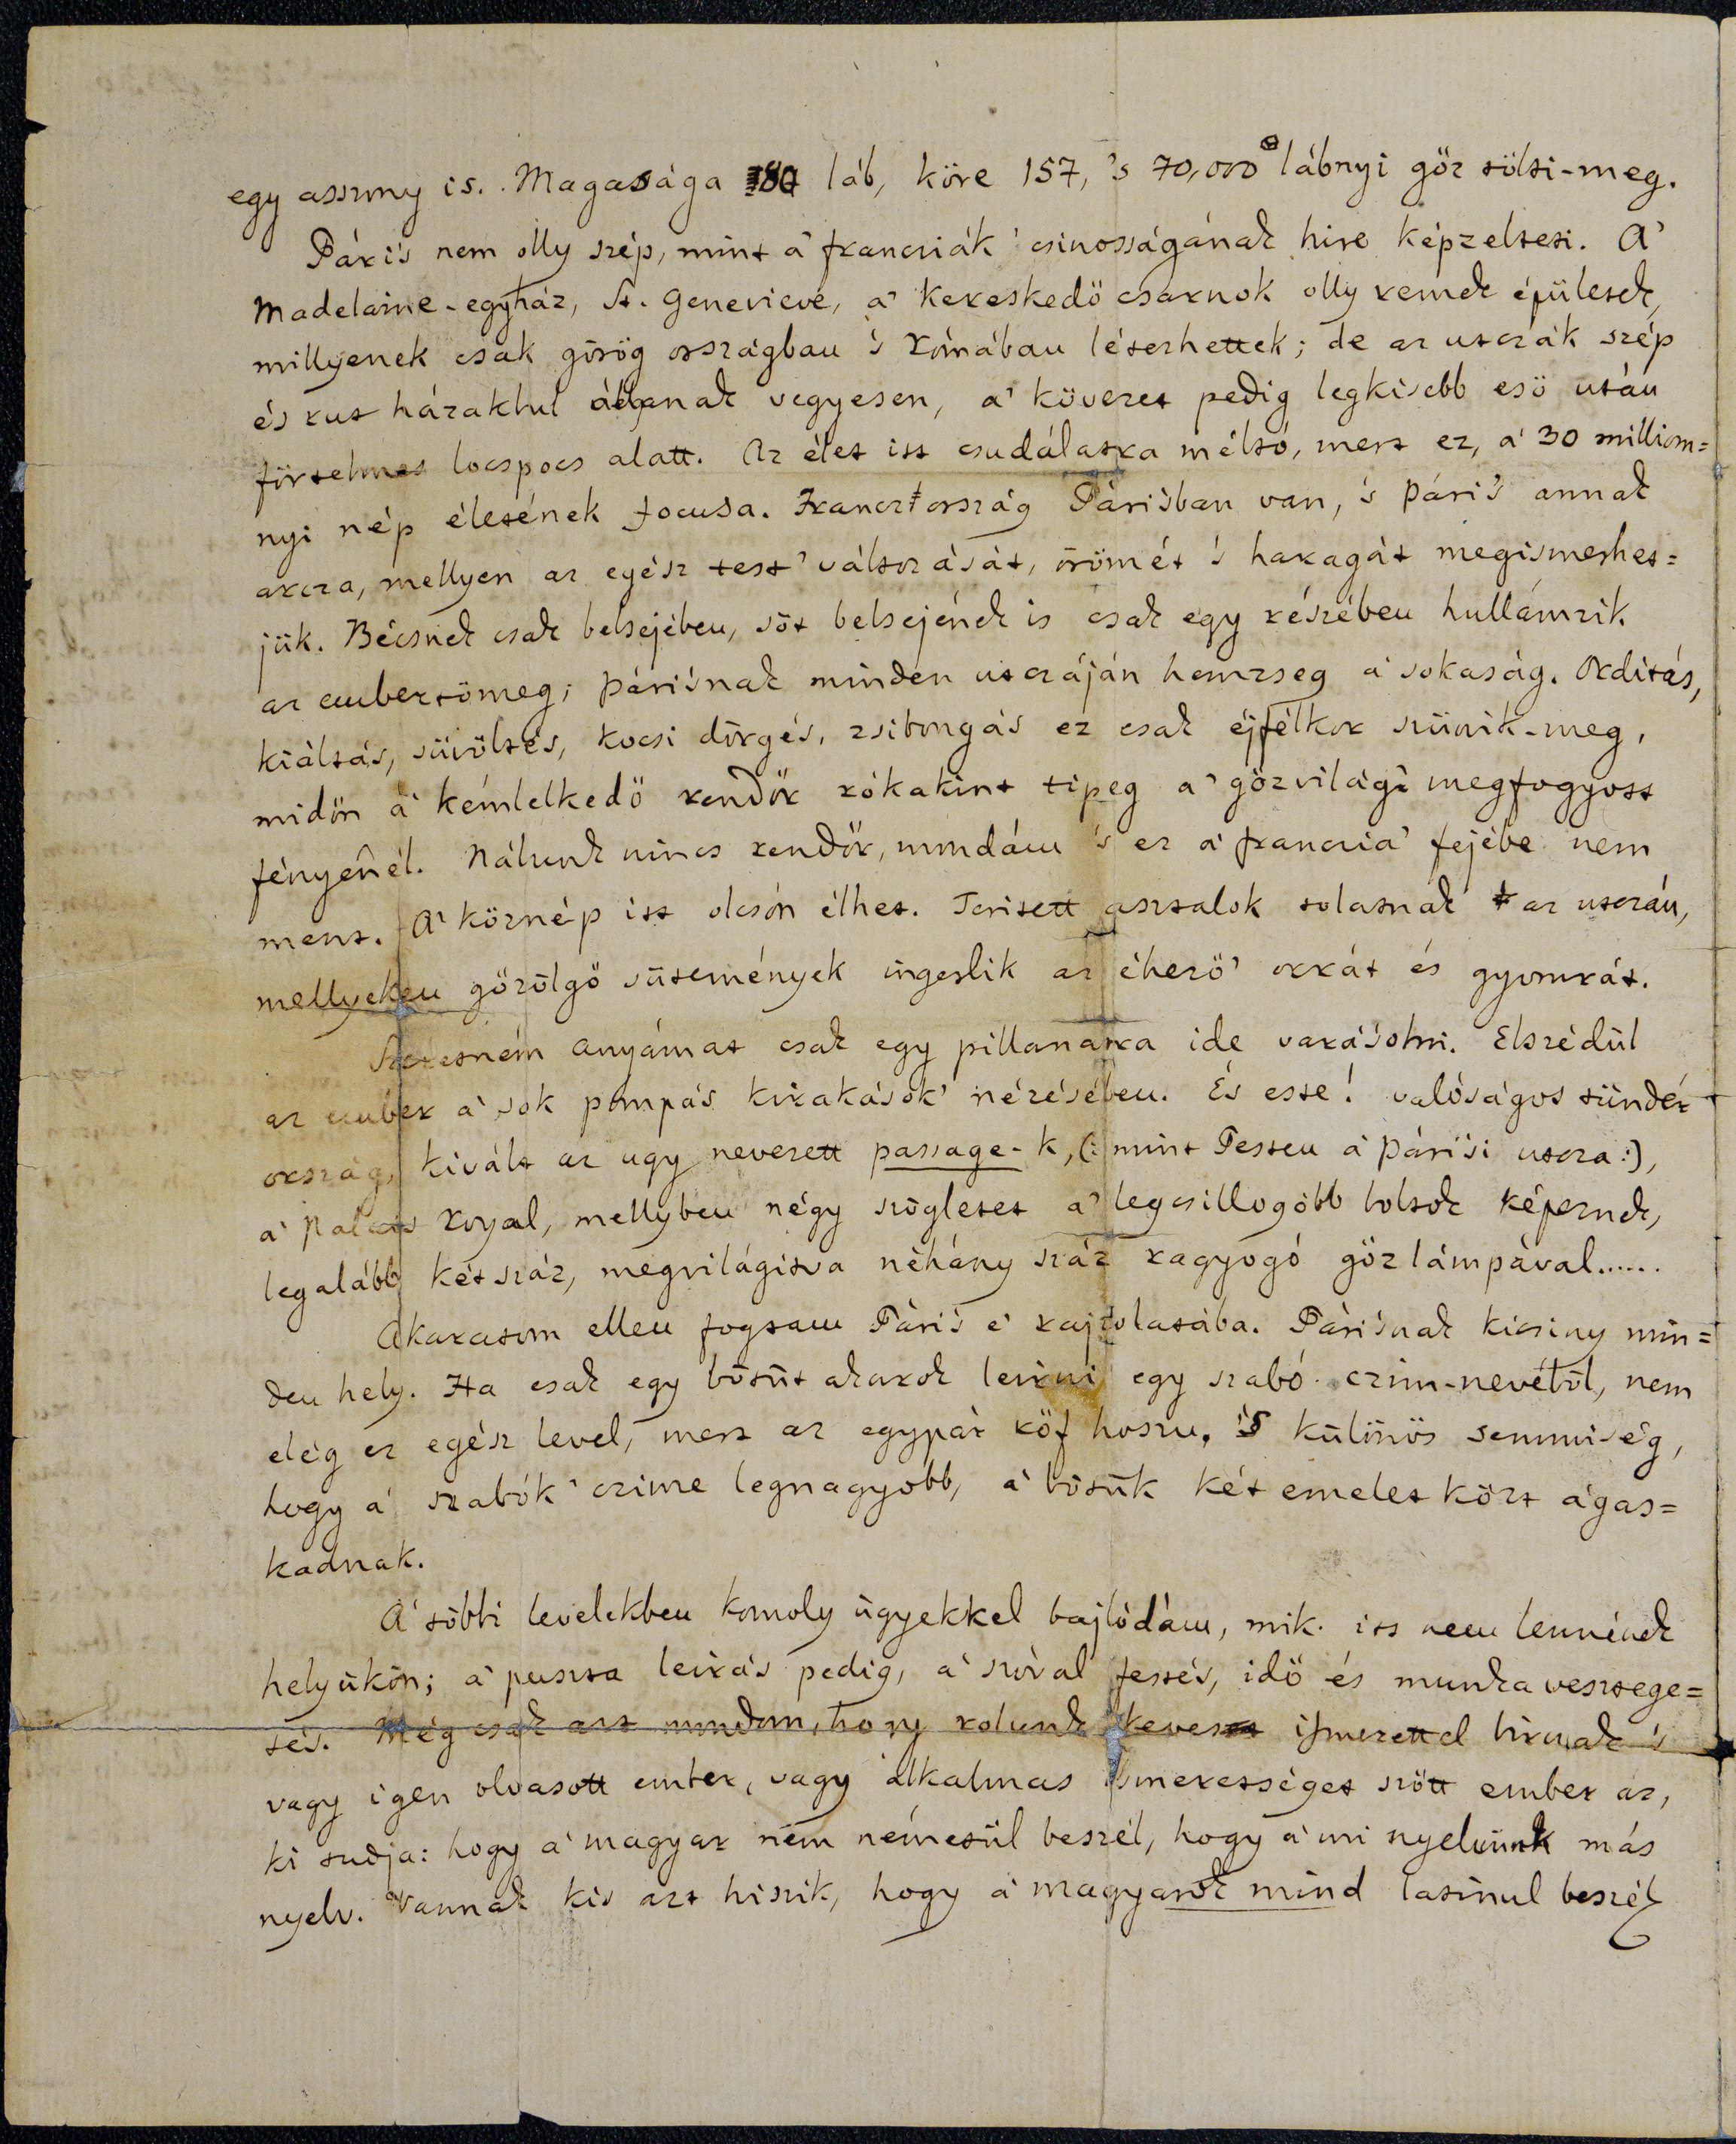 egy asszony is. Magassága 180 láb, köre 157, 's 70,000 lábnyi gőz tölti-meg.
Páris nem olly szép, mint a' franciák' csinosságának hire képzelteti. A'
Madelaine-egyház, St. Genevieve, a' kereskedő csarnok olly remek épületek,
millyenek csak görög országban 's Rómában létezhettek; de az utczák szép
és rut házakbul állanak vegyesen, a' kövezet pedig legkisebb eső után
förtelmes locspocs alatt. Az élet itt csudálatra méltó, mert ez, a' 30 milliom=
nyi nép életének focusa. Francziország Párisban van, 's Páris annak
arcza, mellyen az egész test' változását, örömét 's haragát megismerhet=
jük. Bécsnek csak belsejében, sőt belsejének is csak egy részében hullámzik
az embertömeg; Párisnak minden utczáján hemzseg a' sokaság. Orditás,
kiáltás, süvöltés, kocsi dörgés, zsibongás ez csak éjfélkor szünik-meg,
midőn a' kémlelkedő rendőr rókakint tipeg a' gőzvilág' megfogyott
fényénél. Nálunk nincs rendőr, mondám 's ez a' franczia' fejébe nem
ment. A' köznép itt olcsón élhet. Teritett asztalok tolatnak az utczán,
mellyeken gőzölgő sütemények ingerlik az éhező' orrát és gyomrát.
Szeretném anyámat csak egy pillanatra ide varásolni. Elszédül
az ember a' sok pompás kirakások' nézésében. És este! valóságos tündér
ország, kivált az ugy nevezett passage-k, (: mint Pesten a' párisi utcza :),
a' Palais Royal, mellyben négy szögletet a' legcsillogóbb boltok képeznek,
legalább kétszáz, megvilágitva néhány száz ragyogó gőz lámpával......
Akaratom ellen fogtam Páris' e' rajzolatába. Párisnak kicsiny min=
den hely. Ha csak egy bötüt akarok leirni egy szabó czim-nevéből, nem
elég ez egész level, mert az egypár röf hoszu, 's különös semmiség,
hogy a' szabók' czime legnagyobb, a' bötük két emelet közt ágas=
kadnak.
A' többi levelekben komoly ügyekkel bajlódám, mik itt nem lennének
helyükön; a' puszta leirás pedig, a' szóval festés, idő és munka vesztege=
tés. Még csak azt mondom, hogy rolunk keves ismerettel birnak 's
vagy igen olvasott ember, vagy alkalmas ismeretséget szőtt ember az,
ki tudja: hogy a' magyar nem németül beszél, hogy a' mi nyelvünk más
nyelv. Vannak kik azt hiszik, hogy a' magyarok mind latinul beszél